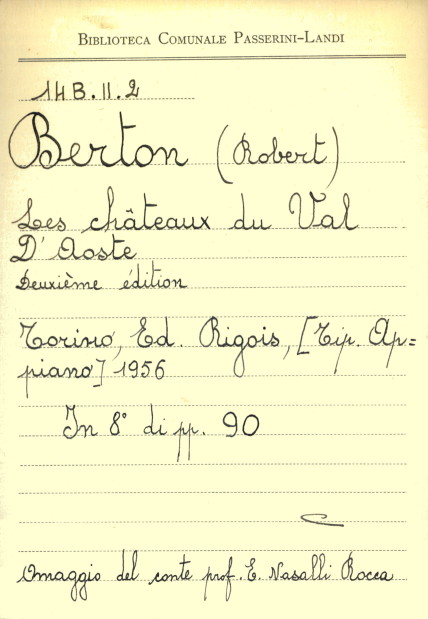 BIBLIOTECA COMUNALE PASSERINI-LANDI
14B.II.2
Berton (Robert)
Les châteaux du Val
D'Aoste
Deuxième édition
Torino, Ed. Rigois, [Tip. Ap=
piano] 1956
In 8° di pp. 90
Omaggio del conte prof. E. Nasalli Rocca